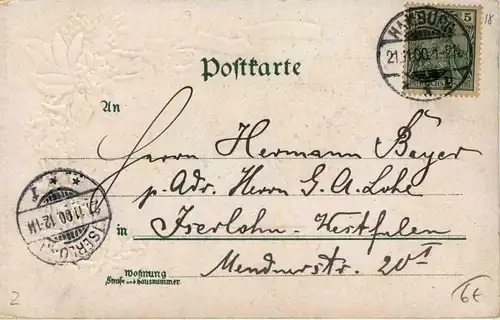 5
18
HAMBURG
21.11.00.1-2N.
Postkarte
An
Herrn Hermann Beyer
p. Adr. Herrn G. A. Lohe
in Iserlohn-Westfalen
Mendnerstr. 20 I
ISERLOHN
11.00.12-1N
f
Wohnung
Straße und Hausnummer
2
6€